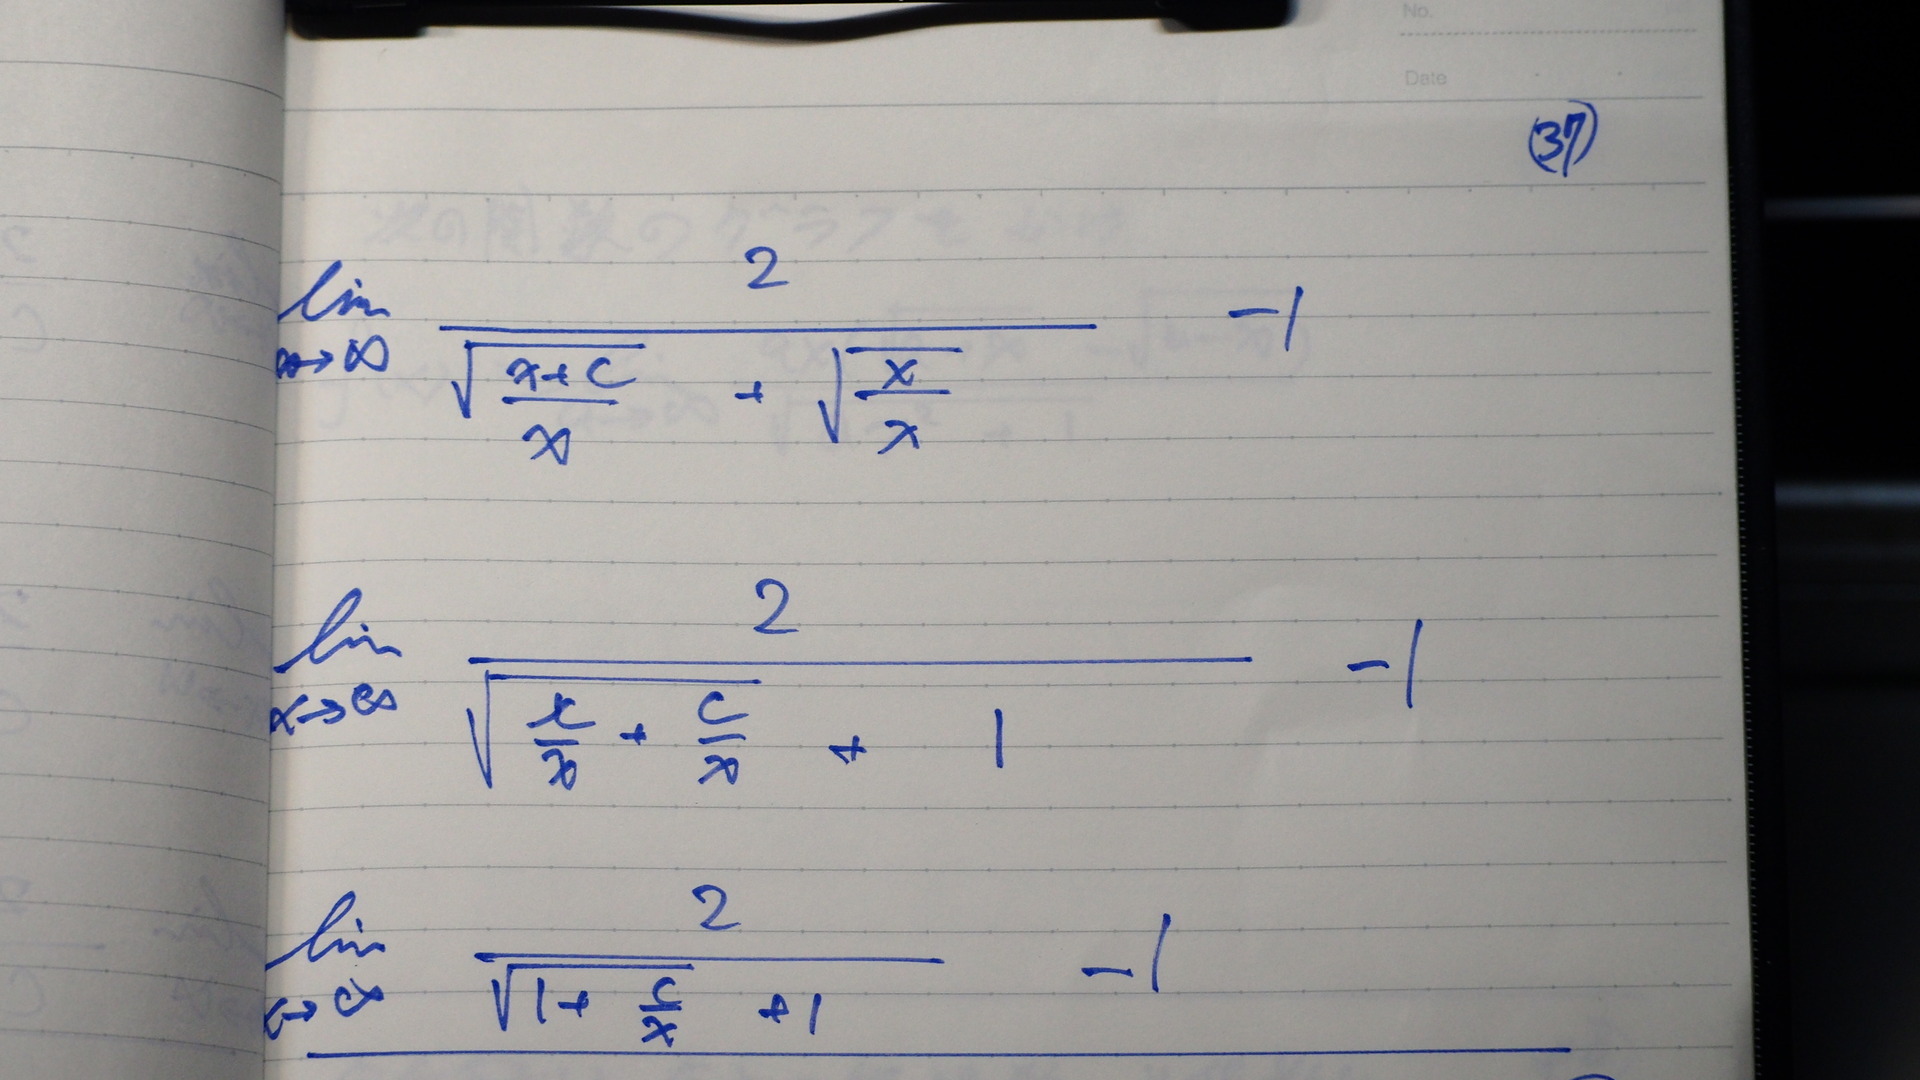 No.
Date
(37)
lim x→∞ 2 / (√((x+c)/x) + √(x/x)) -1
lim x→∞ 2 / (√(x/x + c/x) + 1) -1
lim x→∞ 2 / (√(1 + c/x) + 1) -1